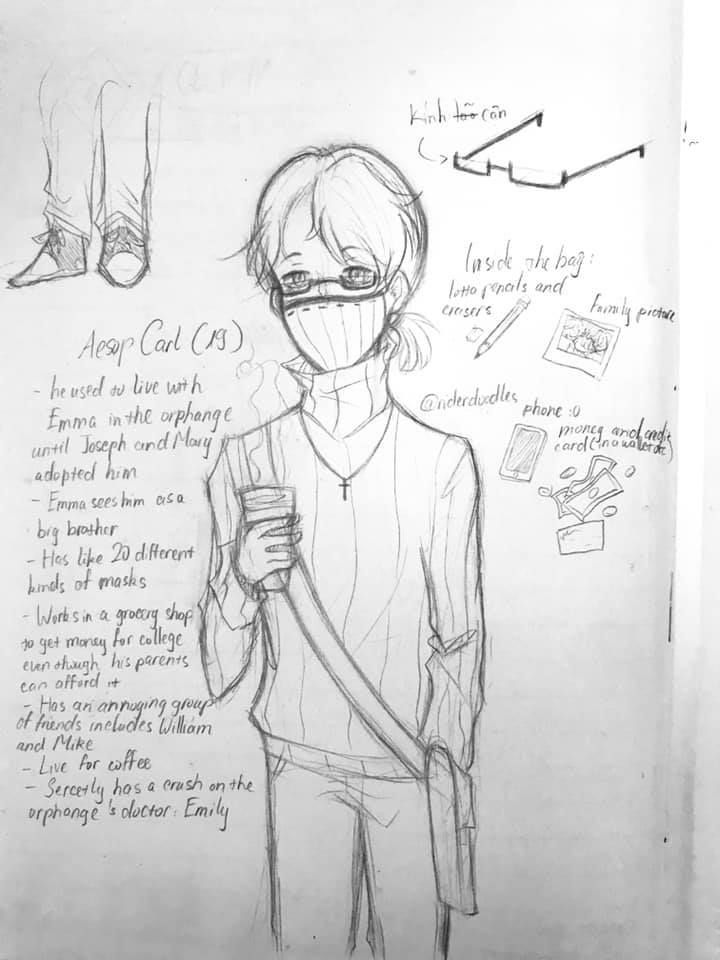 kính lão cận
Inside the bag:
lotta pencils and
erasers
Family picture
@riderdoodles
phone :0
money and credit
card (in a wallet etc)
Aesop Carl (19)
- he used to live with
Emma in the orphange
until Joseph and Mary
adopted him
- Emma sees him as a
big brother
- Has like 20 different
kinds of masks
- Works in a grocery shop
to get money for college
even though his parents
can afford it
- Has an annoying group
of friends includes William
and Mike
- Live for coffee
- Sercetly has a crush on the
orphange's doctor: Emily